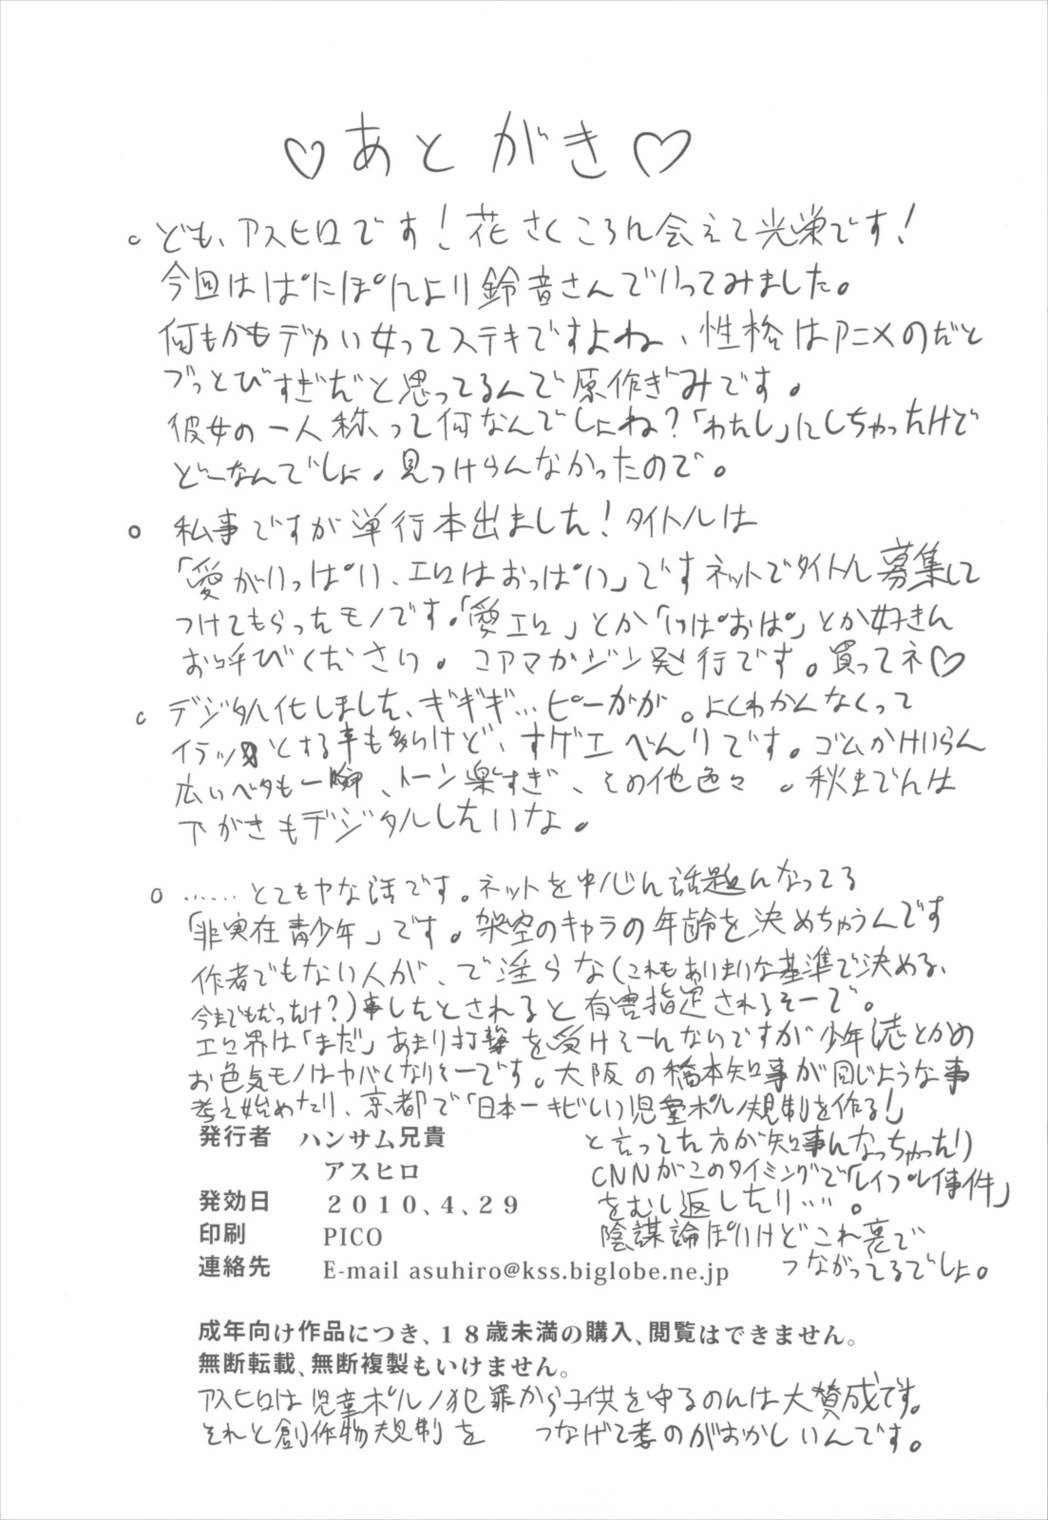 ♡あとがき♡
○ ども、アスヒロです！花さくころに会えて光栄です！
今回はぱにぽにより鈴音さんでいってみました。
何もかもデカい女ってステキですよね、性格はアニメのだと
ブっとびすぎだと思ってるんで原作ぎみです。
彼女の一人称って何なんでしょね？「わたし」にしちゃったけど
どーなんでしょ。見つけらんなかったので。
○ 私事ですが単行本出ました！タイトルは
「愛がいっぱい、エロはおっぱい」ですネットでタイトル募集して
つけてもらったモノです。「愛エロ」とか「いぱおぱ」とか好きに
お呼びください。コアマガジン発行です。買ってネ♡
○ デジタル化しました、ギギギ…ピーガガ。よくわかんなくって
イラッとする事も多いけど、すゲエべんりです。ゴムかけいらん
広いベタも一瞬、トーン楽すぎ、その他色々。秋までには
下がきもデジタルしたいな。
○ ……とてもヤな話です。ネットを中心に話題になってる
「非実在青少年」です。架空のキャラの年齢を決めちゃうんです
作者でもない人が、で淫らな(これもあいまいな基準で決める、
今までもだっけ？)事したとされると有害指定されるそーで。
エロ界は「まだ」あまり打撃を受けそーにないですが少年誌とかの
お色気モノはヤバくなりそーです。大阪の橋本知事が同じような事
考え始めたり、京都で「日本一キビしい児童ポルノ規制を作る！」
と言ってた方が知事になっちゃったり
CNNがこのタイミングで「レイプレイ事件」
をむし返したり……。
陰謀論ぽいけどこれ裏で
つながってるでしょ。
発行者　ハンサム兄貴
アスヒロ
発効日　２０１０.４.２９
印刷　PICO
連絡先　E-mail asuhiro@kss.biglobe.ne.jp
成年向け作品につき、１８歳未満の購入、閲覧はできません。
無断転載、無断複製もいけません。
アスヒロは児童ポルノ犯罪から子供を守るのには大賛成です。
それと創作物規制を　つなげて考のがおかしいんです。